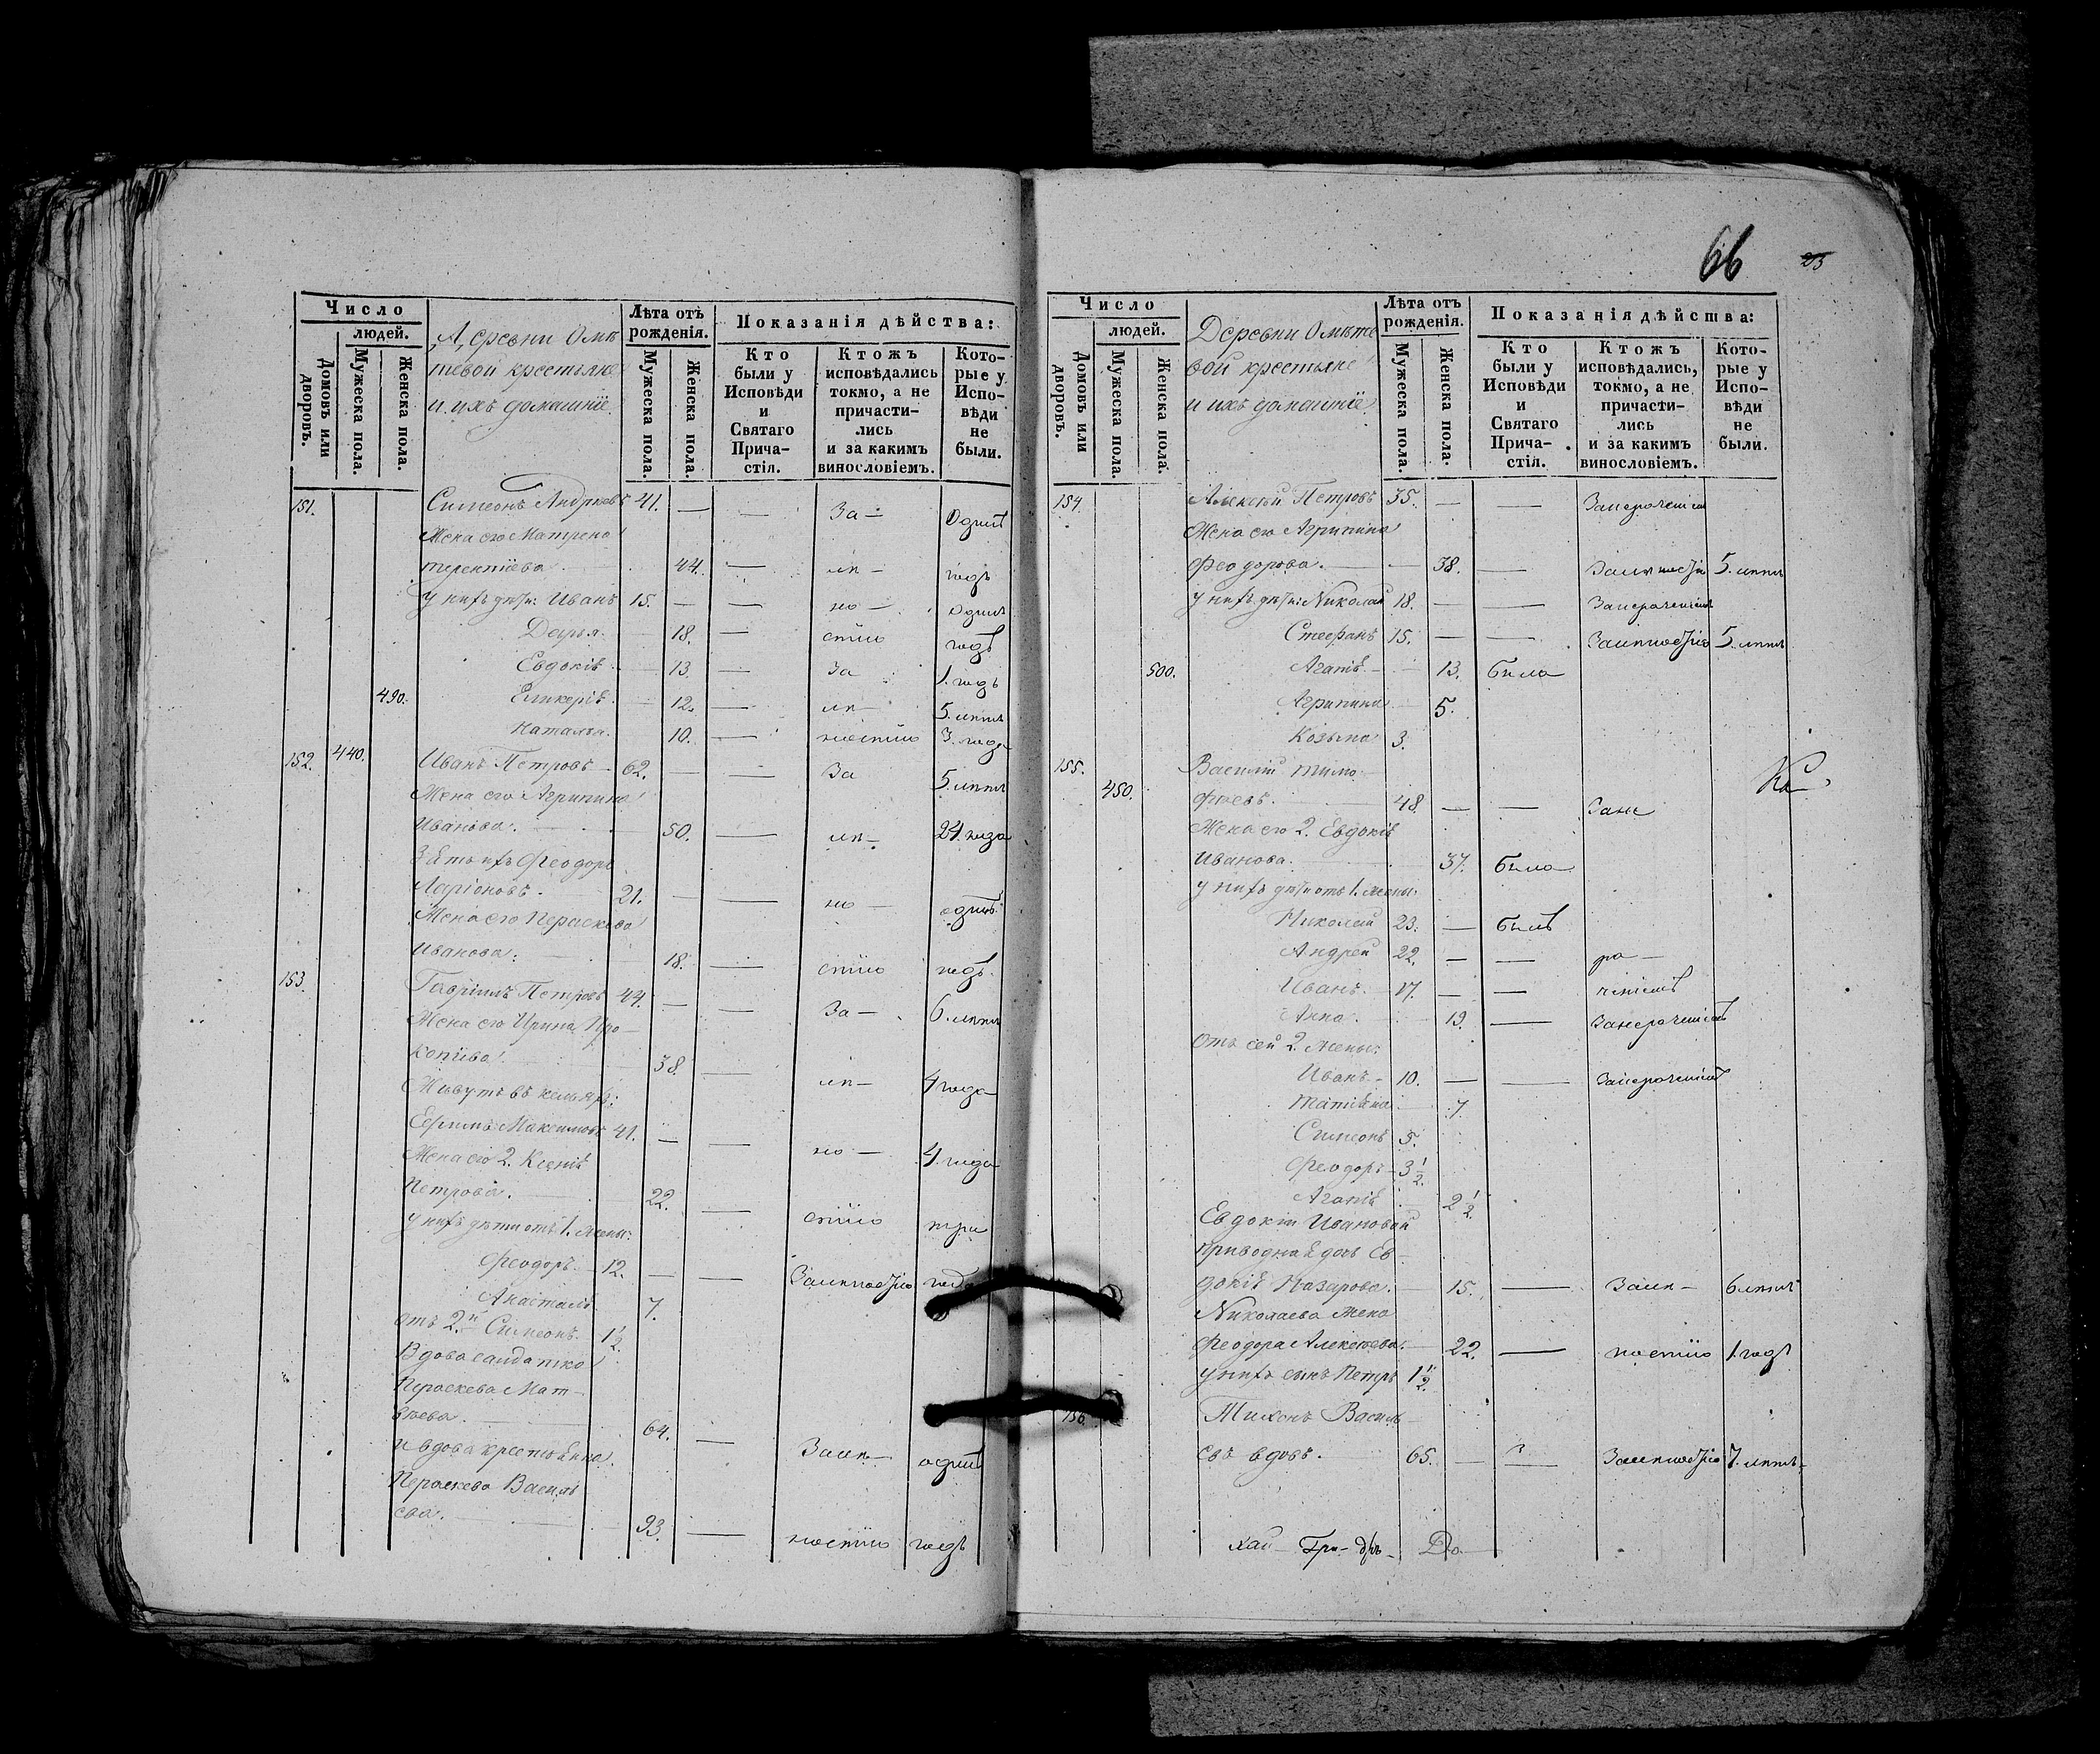 66 23
Число
людей.
Домовъ или дворовъ.
Мужеска пола.
Женска пола.
Деревни Омѣ
тевой крестьяне
и ихъ домашніе.
Лѣта отъ рожденія.
Мужеска пола.
Женска пола.
Показанія дѣйства:
Кто были у Исповѣди и Святаго Прича-стія.
Ктожъ исповѣдались токмо, а не причасти-лись и за какимъ винословіемъ.
Кото-рые у Испо-вѣди не были.
151. Симеонъ Андреевъ 41. — — За — одинъ
Жена его Матрена
терентіева 44. — лѣ — годъ
у нихъ дѣти: Иванъ 15. — — но — одинъ
Дарья. 18. — стію годъ
Евдокіѣ 13. — За 1. годъ
490. Гликеріѣ 12. — лѣ — 5. лѣтъ
Наталья. 10. — ностію 3. года
152. 440. Иванъ Петровъ 62. — — За 5. лѣтъ
Жена его Агрипина
Иванова. 50. — лѣ — 24. года
Зять ихъ Феодоръ
Ларіоновъ. 21. — — но — одинъ
Жена его Параскева
Иванова. 18. — стію годъ.
153. Гавріилъ Петровъ 44. — — За — 6. лѣтъ
Жена его Ирина Про —
копіева 38. — лѣ — 4 года
Живутъ въ кельяхъ:
Ефимъ Максимовъ 41. — — но — 4. года
Жена его 2. Ксеніѣ
Петрова. 22. — стію три
у нихъ дѣти отъ 1. жены:
Феодоръ 12. — — Залѣностію года
Анастасіѣ 7.
отъ 2.й Симеонъ. 1 1/2.
Вдова салдатка
Параскева Мат —
вѣева. 64. — Залѣ — одинъ
и вдова крестьянка
Параскева Василь
ева. 93. — ностію годъ
Число
людей.
Домовъ или дворовъ.
Мужеска пола.
Женска пола.
Деревни Омѣте
вой крестьяне
и ихъ домашніе.
Лѣта отъ рожденія.
Мужеска пола.
Женска пола.
Показанія дѣйства:
Кто были у Исповѣди и Святаго Прича-стія.
Ктожъ исповѣдались, токмо, а не причасти-лись и за какимъ винословіемъ.
Кото-рые у Испо-вѣди не были.
154. Алексѣй Петровъ 35. — —
Жена его Агрипина
Феодорова. 38. — Залѣностію 5. лѣтъ
у нихъ дѣти: Николай 18. — —
Стефанъ 15. — — Залѣностію 5. лѣтъ
500. Агапіѣ 13. была
Агрипина 5.
Козьма 3.
155. Василій Тимо —
450. феевъ. 48. — — Зане
Жена его 2. Евдокіѣ
Иванова. 37. была
у нихъ дѣти отъ 1. жены:
Николай 23. — былъ
Андрей 22. — — ра —
Иванъ. 17. — — ченіемъ
Анна. 19. —
Отъ сей 2. жены:
Иванъ 10. — —
Татіѣна 7.
Симеонъ 5.
Феодоръ 3 1/2.
Агапіѣ 2 1/2.
Евдокіи Ивановой
приводнаѣ дочь Ев —
докіѣ Назарова. 15. — Залѣ — 6 лѣтъ
Николаева жена
Феодора Алексѣева. 22. — ностію 1. годъ
у нихъ сынъ Петръ 1 1/2.
156. Тихонъ Василь —
евъ вдовъ. 65. — — Залѣностію 7. лѣтъ